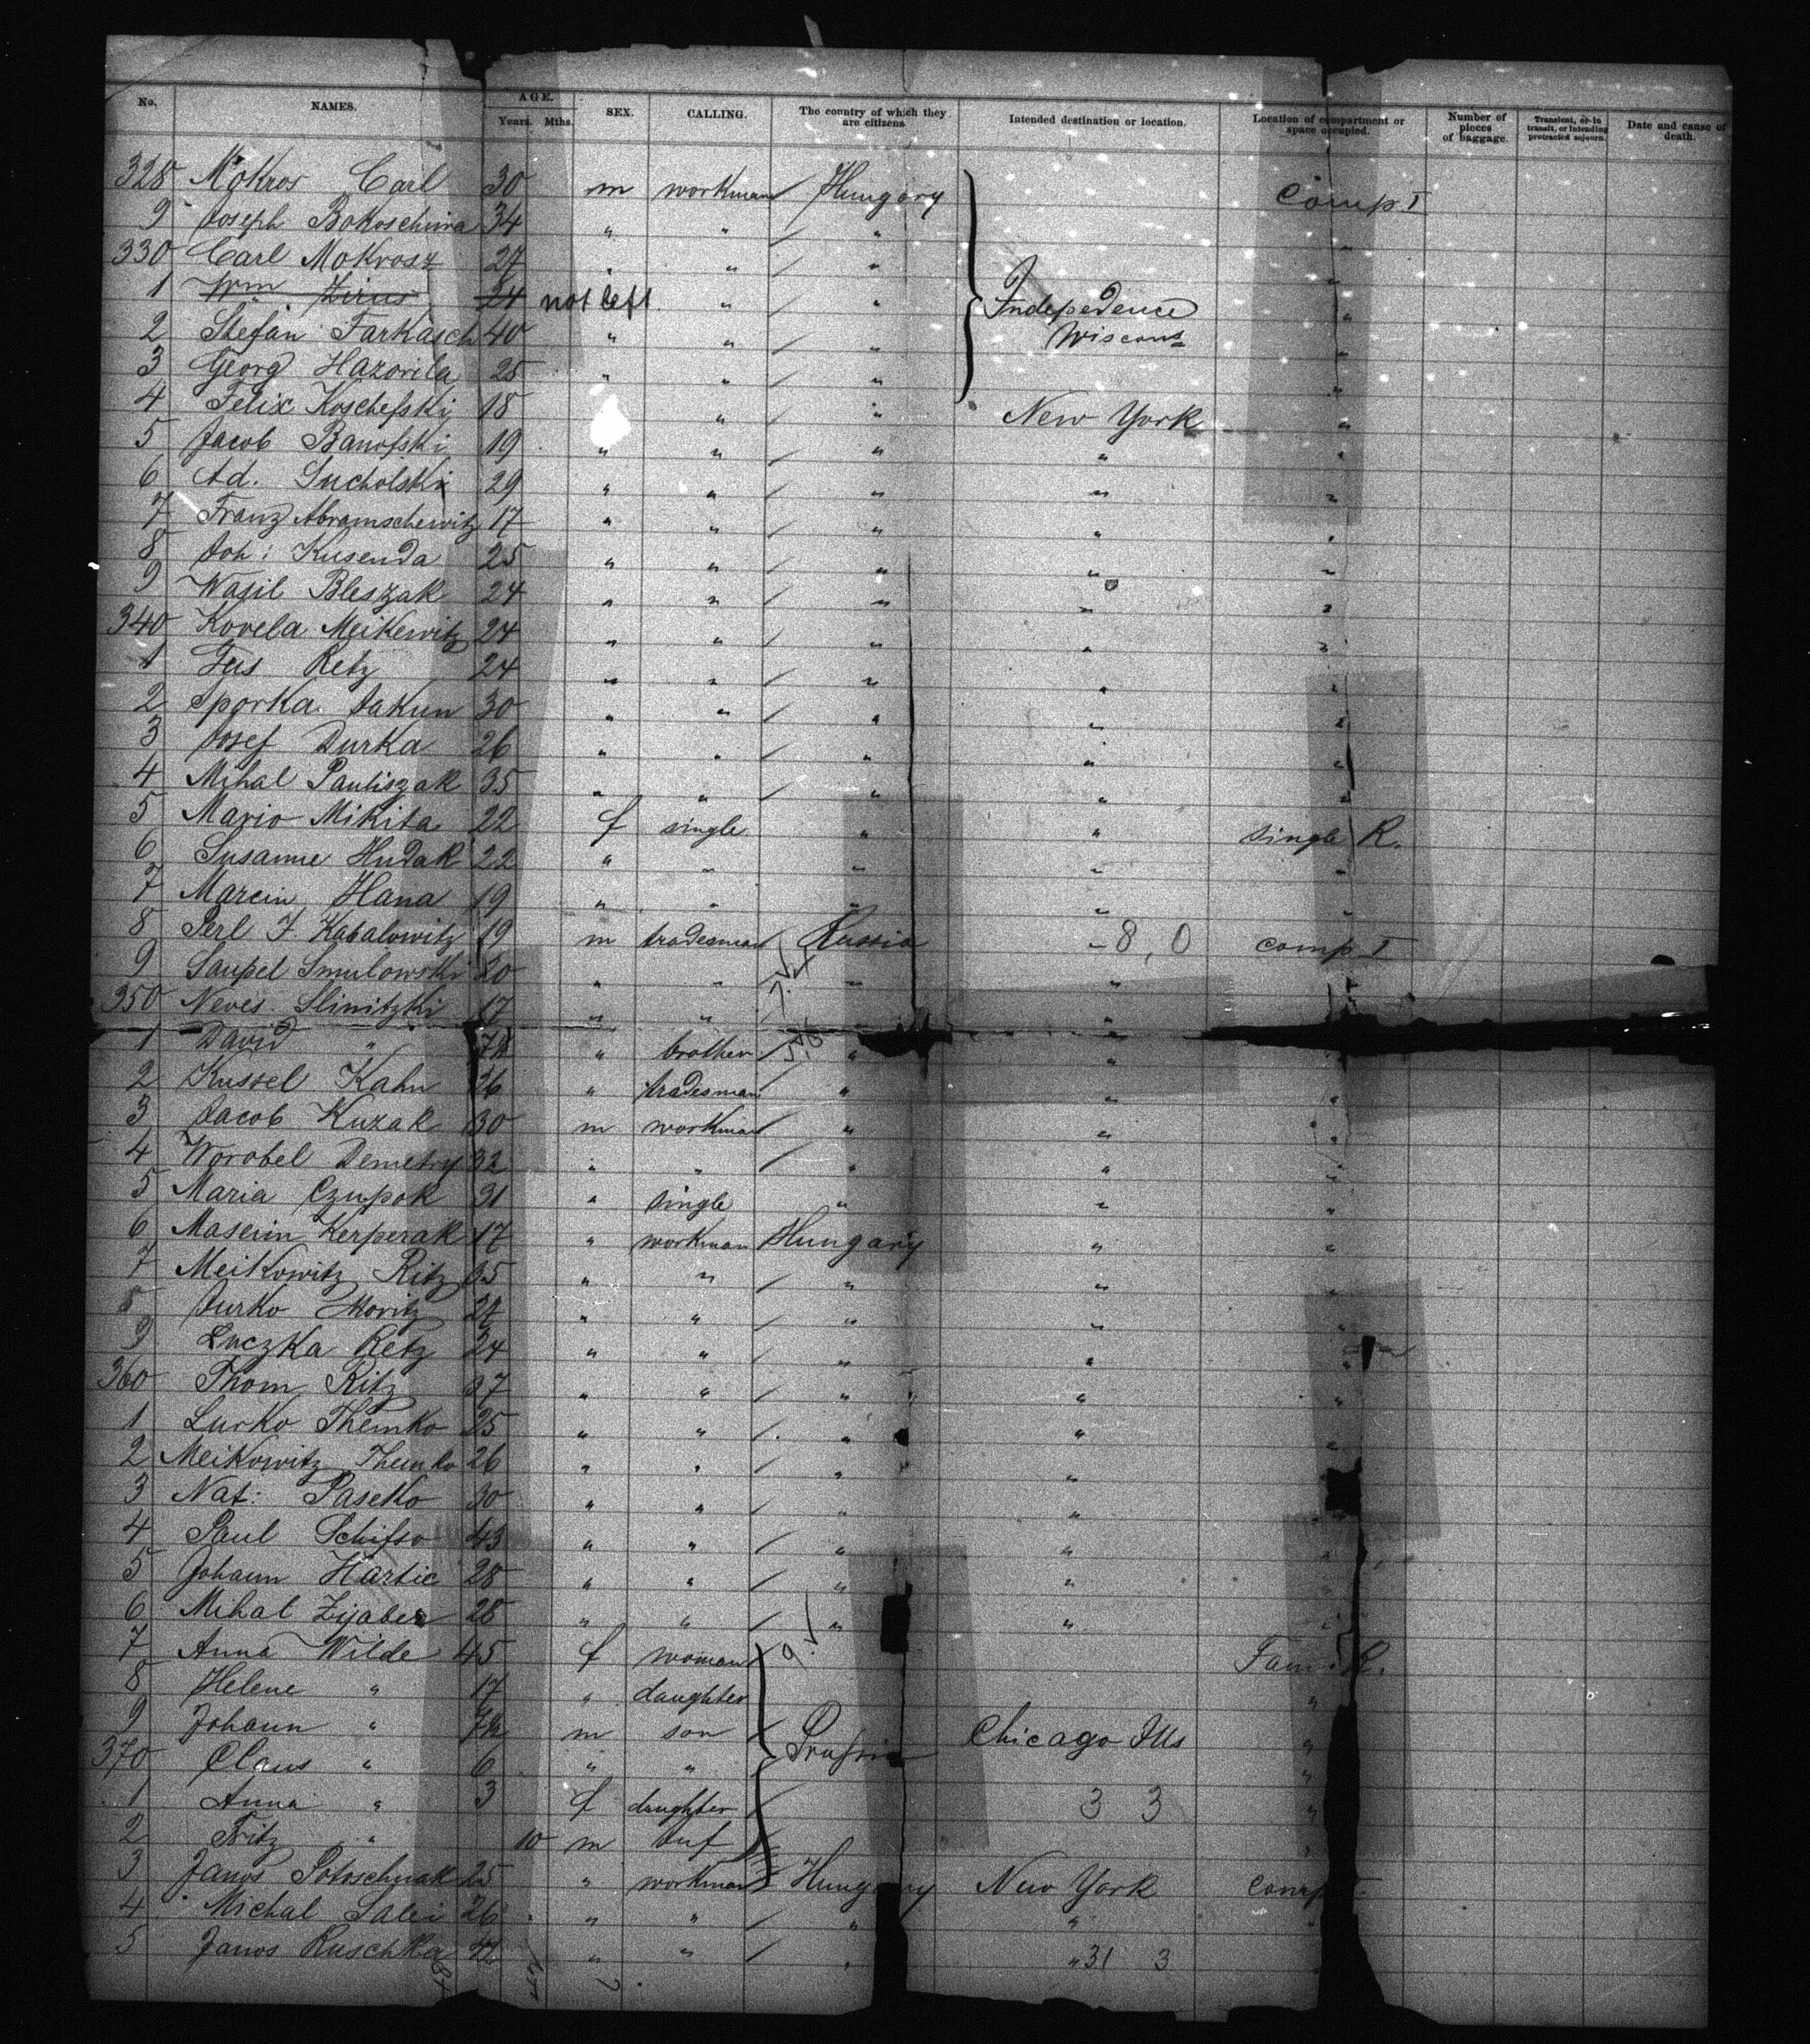 No. NAMES. AGE. Years. Mths. SEX. CALLING. The country of which they are citizens Intended destination or location. Location of compartment or space occupied. Number of pieces of baggage. Transient, or in transit, or intending protracted sojourn. Date and cause of death.
328 Mokros Carl 30 m workman Hungary Comp. I
9 Joseph Bokoschiwa 34 " " " "
330 Carl Mokrosz 27 " " " "
1 Wm Zirus 24 not left " " Independence "
2 Stefan Farkasch 40 " " " Wiscons "
3 Georg Hazorila 25 " " " "
4 Felix Koschefski 18 " " New York "
5 Jacob Banofski 19 " " " " "
6 Ad. Sucholski 29 " " " " "
7 Franz Abramschewitz 17 " " " " "
8 Joh: Kusenda 25 " " " " "
9 Wasil Bleszak 24 " " " " "
340 Kovela Meikewitz 24 " " " " "
1 Fus Retz 24 " " " " "
2 Sporka Jakun 30 " " " " "
3 Josef Durka 26 " " " " "
4 Mihal Pauliszak 35 " " " " "
5 Mario Mikita 22 f single " " single R.
6 Susanne Hudak 22 " " " " "
7 Marcin Hana 19 " " " " "
8 Perl J. Kabalowitz 19 m tradesman Russia " 8, 0 comp I
9 Saupel Smulowski 20 " " " "
350 Neves Slinitzki 17 " " "
1 David " " brother " " "
2 Kussel Kahn 26 " tradesman " " "
3 Jacob Kuzak 30 m workman " " "
4 Worobel Demetry 32 " " " " "
5 Maria Czupok 31 " single " " "
6 Maserin Kerperak 17 " workman Hungary " "
7 Meikowitz Ritz 35 " " " " "
8 Jurko Moritz 27 " " " " "
9 Luczka Retz 24 " " " " "
360 Thom Ritz 37 " " " " "
1 Lurko Themko 25 " " " " "
2 Meikowitz Themko 26 " " " " "
3 Nat: Paseko 30 " " " "
4 Paul Schifso 43 " " " " "
5 Johann Hartie 28 " " " "
6 Mihal Zijaber 28 " " " " "
7 Anna Wilde 45 f woman Fam. R.
8 Helene " 17 " daughter "
9 Johann " m son Prussia Chicago Ills "
370 Claus " 6 " " "
1 Anna " 3 f daughter 3 3 "
2 Fritz " 10 m Inf
3 Janos Potoschnak 25 " workman Hungary New York comp I
4 Michal Salei 26 " " " "
5 Janos Ruschka 42 " " " " 31 3